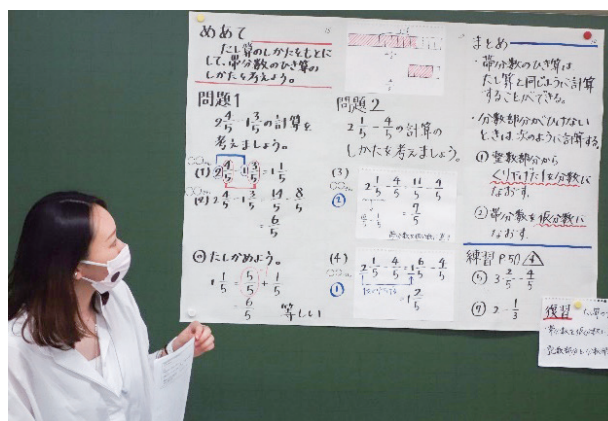 めあて
たし算のしかたをもとに
して、帯分数のひき算の
しかたを考えよう。
問題1
2 4/5 - 1 3/5 の計算を
考えましょう。
(1) 2 4/5 - 1 3/5 = 1 1/5
(2) 2 4/5 - 1 3/5 = 14/5 - 8/5
= 6/5
たしかめよう。
1 1/5 = 5/5 + 1/5
= 6/5 等しい
問題2
2 1/5 - 4/5 の計算の
しかたを考えましょう。
(3)
2 1/5 - 4/5 = 11/5 - 4/5
②
= 7/5
(4)
2 1/5 - 4/5 = 1 6/5 - 4/5
①
= 1 2/5
まとめ
・帯分数のひき算は
たし算と同じように計算
することができる。
・分数部分がひけない
ときは、次のように計算する。
① 整数部分から
くり下げた1を分数に
なおす。
② 帯分数を仮分数に
なおす。
練習 P50 4
⑤ 3 2/5 - 4/5
⑦ 2 - 1/3
復習